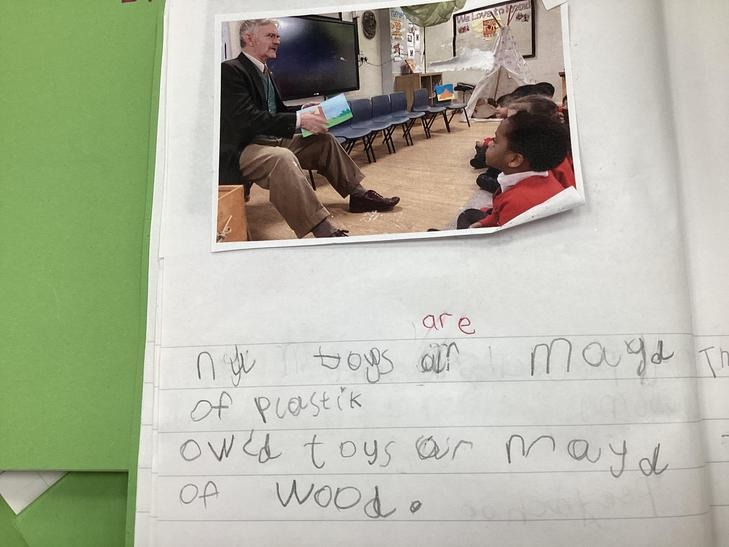 We Love to Read!
are
nyu toys air mayd
Th
of plastik
owld toys air mayd
of wood.